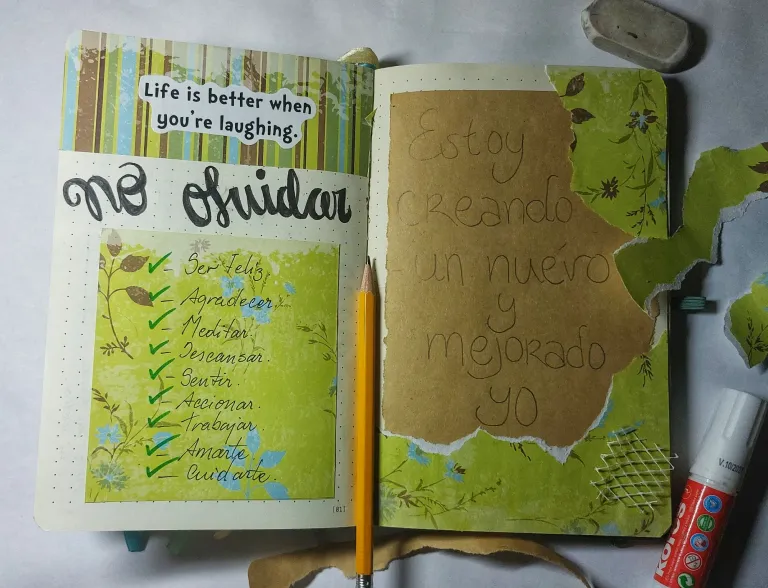 Life is better when
you're laughing.
no olvidar
- Ser Feliz.
- Agradecer.
- Meditar.
- Descansar.
- Sentir.
- Accionar.
- Trabajar.
- Amarte
- Cuidarte.
[81]
Estoy
creando
un nuevo
y
mejorado
yo
V.10/202
Kores